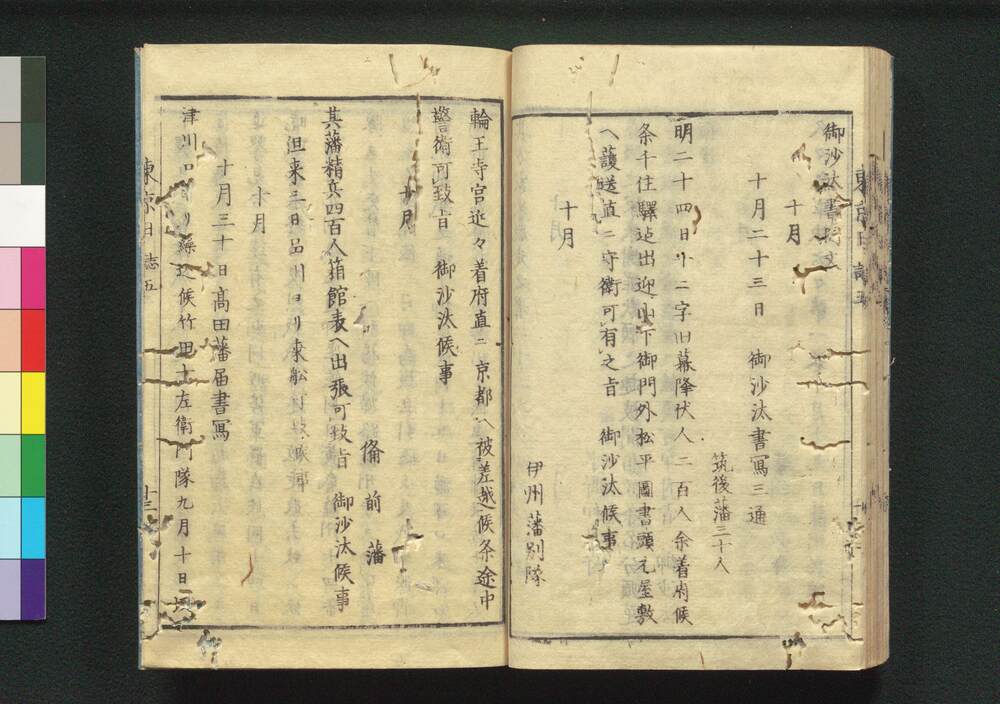 御沙汰書
十月
十月二十三日 御沙汰書寫三通
筑後藩三十人
明二十四日 二字旧幕降伏人二百人余着府候
条千住驛迠出迎山下御門外松平圖書頭元屋敷
ヘ護送直ニ守衛可有之旨 御沙汰候事
十月
伊州藩別隊
輪王寺宮近々着府直ニ京都ヘ被差越候条途中
警衛可致旨 御沙汰候事
十月
偹前藩
其藩精兵四百人箱館表ヘ出張可致旨 御沙汰候事
但来三日品川ヨリ乗船
十月
十月三十日高田藩届書寫
津川口ヨリ繰込候竹田十左衛門隊九月十日
東京日誌五